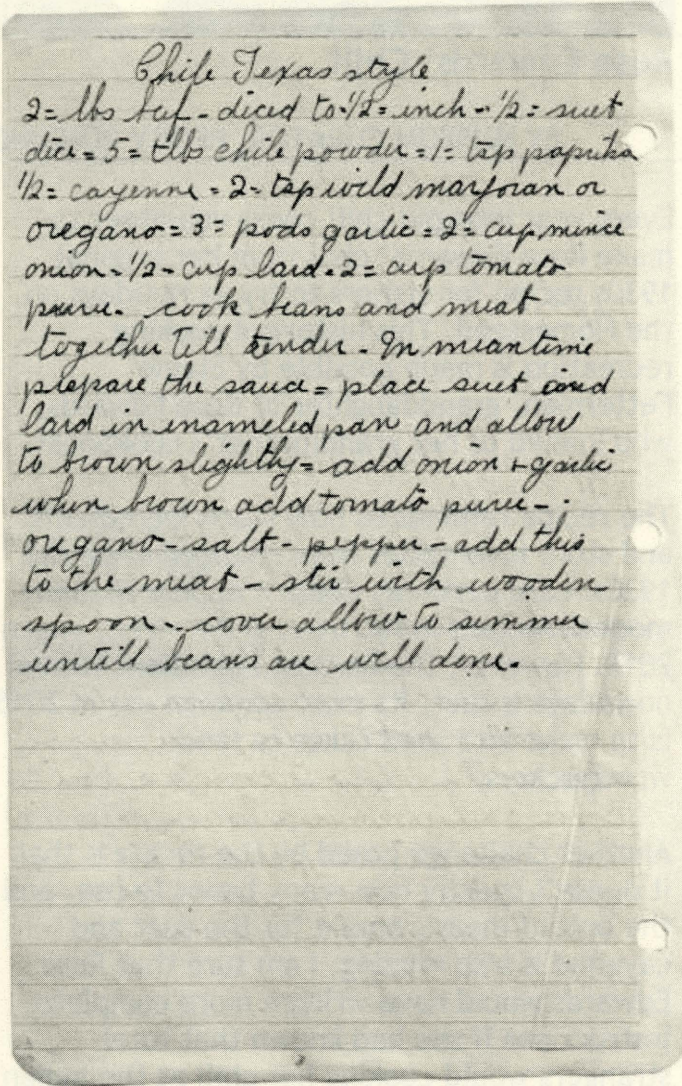 Chile Texas style
2= lbs beef - diced to-1/2= inch -- 1/2= suet
dice = 5= tlbs chile powder = 1= tsp paprika
1/2= cayenne = 2= tsp wild marjoran or
oregano = 3= pods garlic = 2= cup mince
onion - 1/2- cup lard - 2= cup tomato
puree. cook beans and meat
together till tender - In meantime
prepare the sauce = place suet and
lard in enameled pan and allow
to brown slightly = add onion + garlic
when brown add tomato puree -
oregano - salt - pepper - add this
to the meat - stir with wooden
spoon -. cover allow to simmer
untill beans are well done.